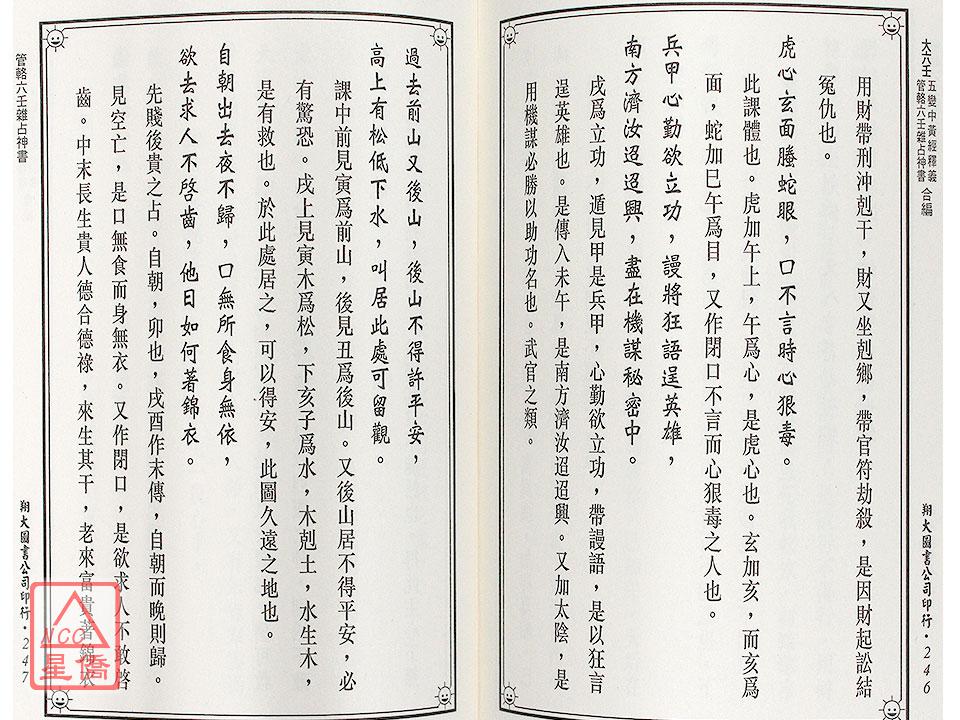 大六壬 五變中黃經釋義 管輅六壬雜占神書 合編
用財帶刑沖剋干，財又坐剋鄉，帶官符劫殺，是因財起訟結
冤仇也。
虎心玄面螣蛇眼，口不言時心狠毒。
此課體也。虎加午上，午爲心，是虎心也。玄加亥，而亥爲
面，蛇加巳午爲目，又作閉口不言而心狠毒之人也。
兵甲心勤欲立功，謾將狂語逞英雄，
南方濟汝迢迢興，盡在機謀秘密中。
戌爲立功，遁見甲是兵甲，心勤欲立功，帶謾語，是以狂言
逞英雄也。是傳入未午，是南方濟汝迢迢興。又加太陰，是
用機謀必勝以助功名也。武官之類。
翔大圖書公司印行·246
過去前山又後山，後山不得許平安，
高上有松低下水，叫居此處可留觀。
課中前見寅爲前山，後見丑爲後山。又後山居不得平安，必
有驚恐。戌上見寅木爲松，下亥子爲水，木剋土，水生木，
是有救也。於此處居之，可以得安，此圖久遠之地也。
自朝出去夜不歸，口無所食身無依，
欲去求人不啓齒，他日如何著錦衣。
先賤後貴之占。自朝，卯也，戌酉作末傳，自朝而晚則歸。
見空亡，是口無食而身無衣。又作閉口，是欲求人不敢啓
齒。中末長生貴人德合德祿，來生其干，老來富貴著錦衣
管輅六壬雜占神書
翔大圖書公司印行·247
NCC
星僑